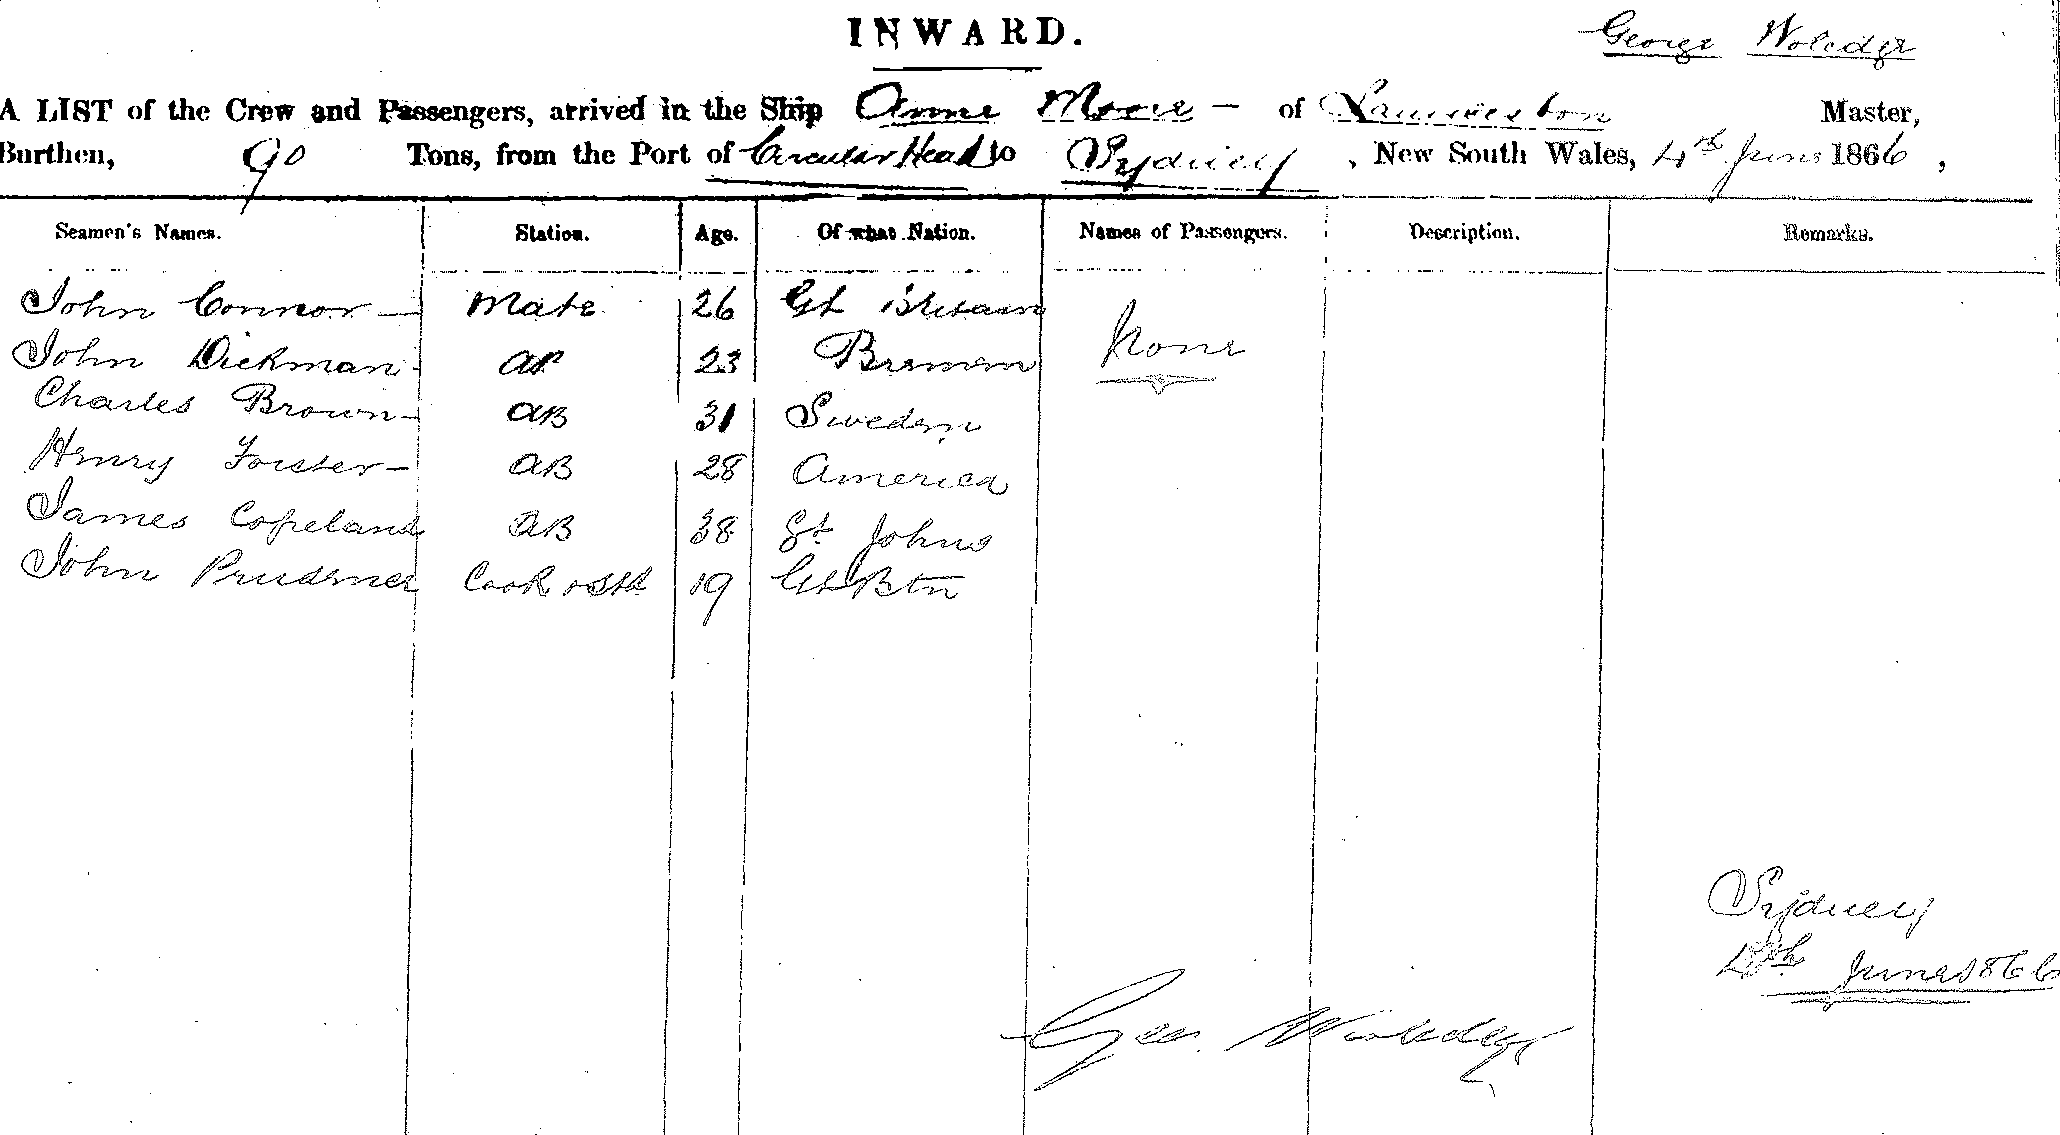 INWARD.
George Woledge
A LIST of the Crew and Passengers, arrived in the Ship Anne Moore - of Launceston Master,
Burthen, 90 Tons, from the Port of Circular Head to Sydney, New South Wales, 4th June 1866,
Seamen's Names. Station. Age. Of what Nation. Names of Passengers. Description. Remarks.
John Connor - Mate 26 Gt Britain None
John Dickman - AB 23 Bremen
Charles Brown - AB 31 Sweden
Henry Forster - AB 28 America
James Copeland AB 38 St Johns
John Prudence Cook & Std 19 Gt Btn
Sydney
4th June 1866
Geo. Woledge